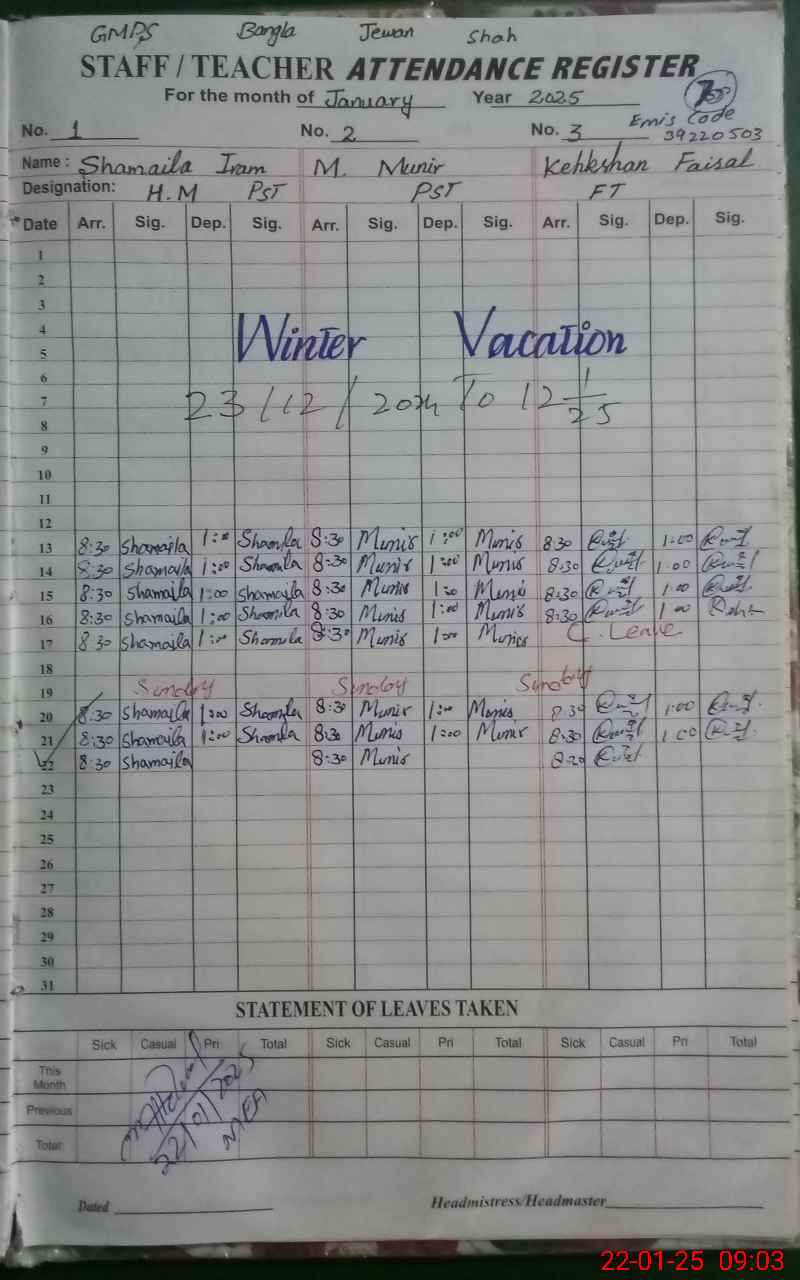 GMPS Bangla Jewan Shah
STAFF / TEACHER ATTENDANCE REGISTER
For the month of January Year 2025
Emis Code
No. 1 No. 2 No. 3 39220503
Name : Shamaila Iram M. Munir Kehkshan Faisal
Designation: H.M PST PST FT
Date Arr. Sig. Dep. Sig. Arr. Sig. Dep. Sig. Arr. Sig. Dep. Sig.
1
2
3
4
Winter Vacation
5
6
7
23/12/2024 To 12 1/25
8
9
10
11
12
13 8:30 Shamaila 1:00 Shamila 8:30 Munir 1:00 Munir 8:30 1:00
14 8:30 Shamaila 1:00 Shamila 8:30 Munir 1:00 Munir 8:30 1:00
15 8:30 Shamaila 1:00 Shamaila 8:30 Munir 1:00 Munir 8:30 1:00
16 8:30 Shamaila 1:00 Shamila 8:30 Munir 1:00 Munir 8:30 1:00
17 8:30 Shamaila 1:00 Shamila 8:30 Munir 1:00 Munir C. Leave
18
19 Sunday Sunday Sunday
20 8:30 Shamaila 1:00 Shamila 8:30 Munir 1:00 Munir 8:30 1:00
21 8:30 Shamaila 1:00 Shamila 8:30 Munir 1:00 Munir 8:30 1:00
22 8:30 Shamaila 8:30 Munir
23
24
25
26
27
28
29
30
31
STATEMENT OF LEAVES TAKEN
Sick Casual Pri Total Sick Casual Pri Total Sick Casual Pri Total
This Month
Previous
Total
22/01/2025
Dated Headmistress/Headmaster
22-01-25 09:03